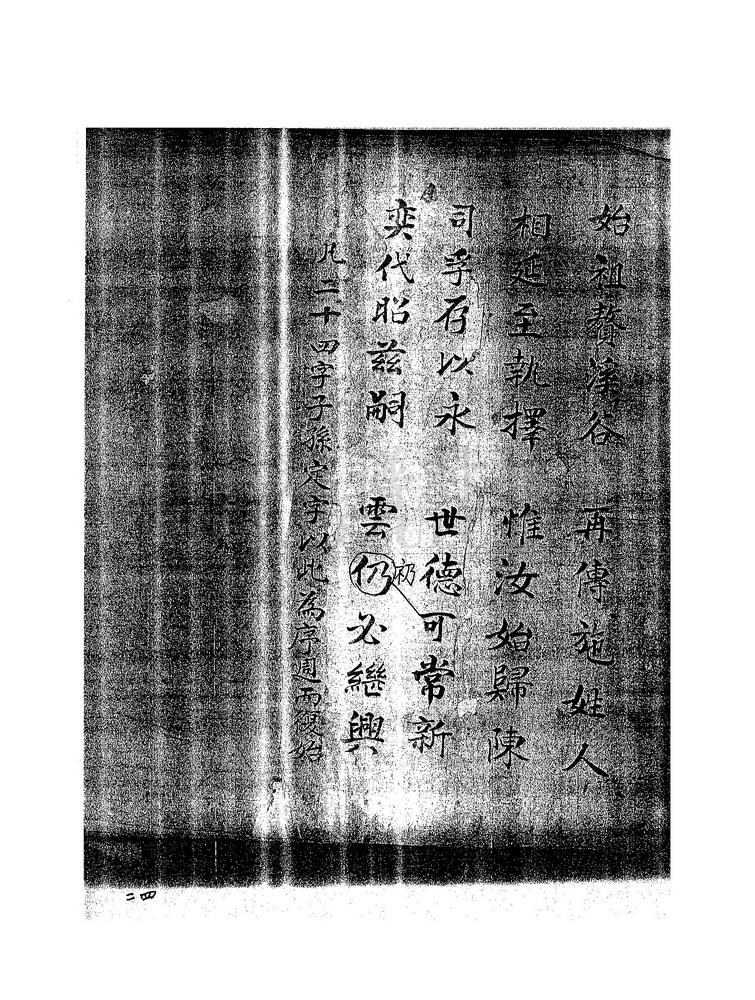 始祖贅溪谷 再傳施姓人
相延至執擇 惟汝始歸陳
司孚存以永 世德可常新
奕代昭茲嗣 雲仍必繼興
初
凡二十四字子孫定字以此為序週而復始
二四